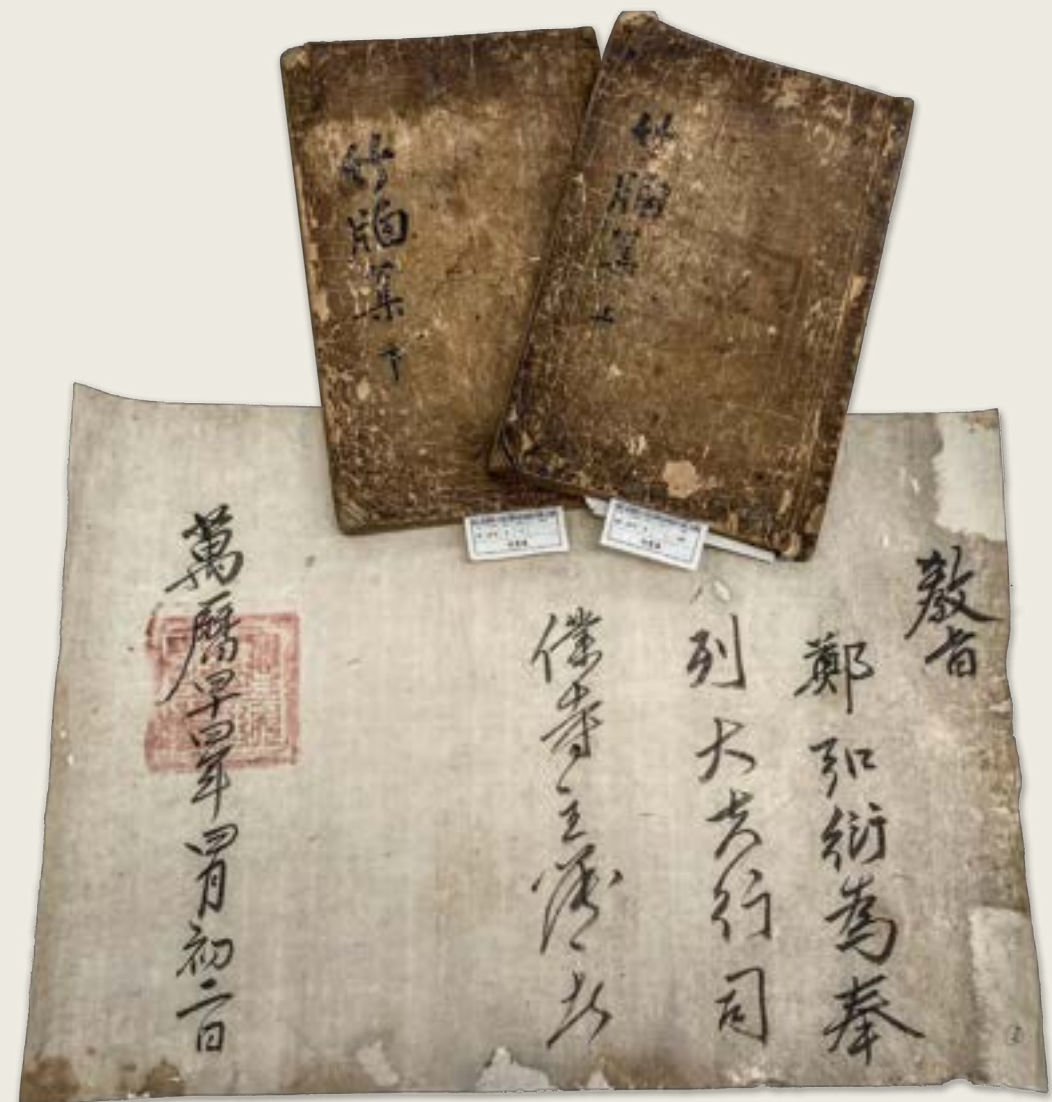 竹牕集 上
竹牕集 下
敎旨
鄭弘衍爲奉
列大夫行司
僕寺主簿者
萬曆四十四年四月初二日